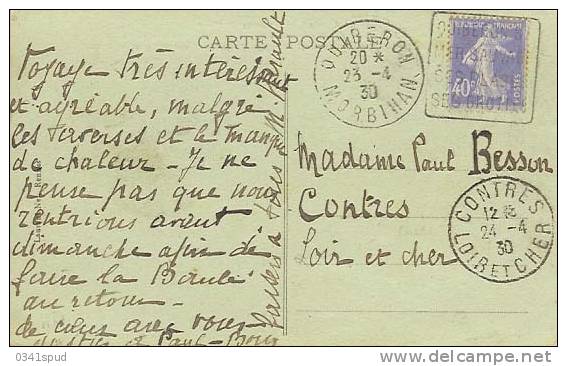 CARTE POSTALE
Voyage très intéressant
et agréable, malgré
les averses et le manque
de chaleur - Je ne
pense pas que nous
rentrions avant
dimanche afin de
faire la Baule
au retour -
de cœur avec vous
et Paul - Bons
baisers à tous
QUIBERON
20 *
23 -4
30
MORBIHAN
REPUBLIQUE FRANÇAISE
40c
POSTES
Madame Paul Besson
Contres
Loir et cher
CONTRES
12
24 -4
30
LOIR ET CHER
0341spud
delcampe.net